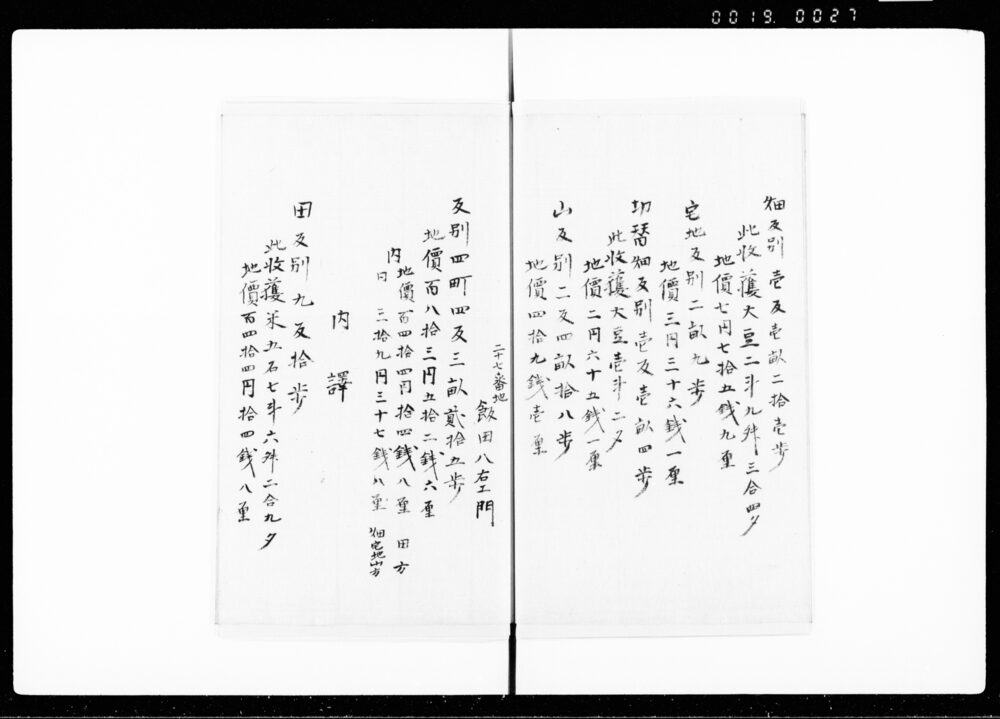 0019. 0027
畑反別壱反壱畝二拾壱歩
此收獲大豆二斗九升三合四夕
地價七円七拾五銭九厘
宅地反別二畝九歩
地價三円三十六銭一厘
切替畑反別壱反壱畝四歩
此收獲大豆壱斗二夕
地價二円六十五銭一厘
山反別二反四畝拾八歩
地價四拾九銭壱厘
二十七番地
飯田八右エ門
反別四町四反三畝貳拾五歩
地價百八拾三円五拾二銭六厘
内地價百四拾四円拾四銭八厘 田方
内日 三拾九円三十七銭八厘 畑宅地山方
内譯
田反別九反拾歩
此收獲米五石七斗六升二合九夕
地價百四拾四円拾四銭八厘